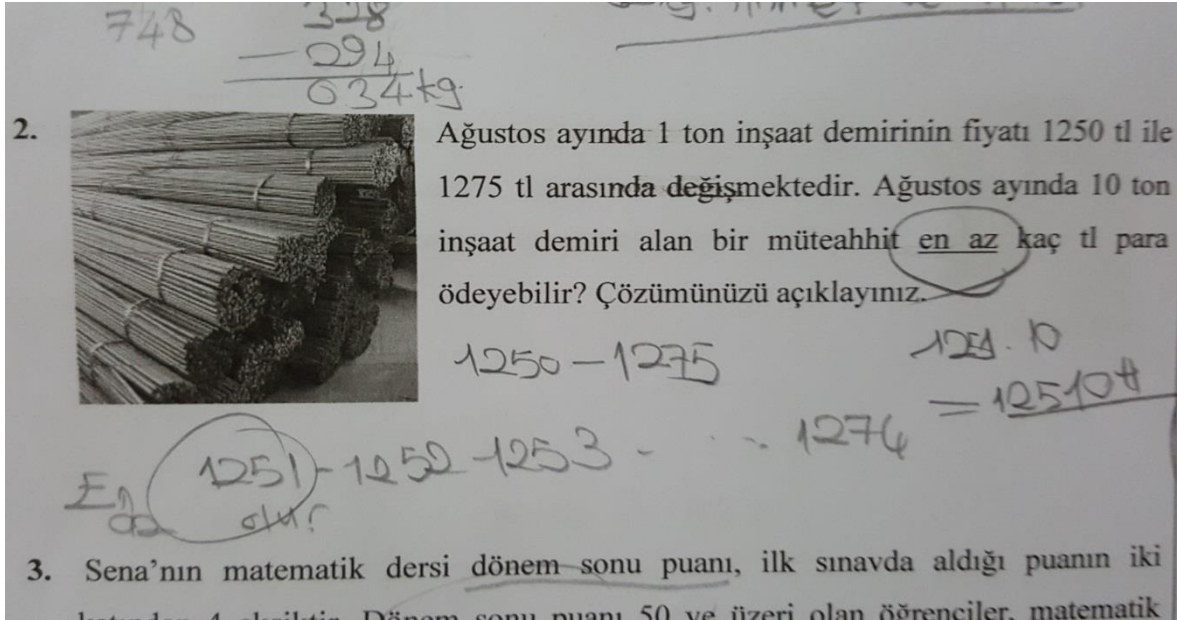 748
328
- 294
034 kg
2.
Ağustos ayında 1 ton inşaat demirinin fiyatı 1250 tl ile
1275 tl arasında değişmektedir. Ağustos ayında 10 ton
inşaat demiri alan bir müteahhit en az kaç tl para
ödeyebilir? Çözümünüzü açıklayınız.
1250 - 1275
1251 . 10
= 12510 tl
En az 1251 - 1252 - 1253 - ... 1274
olur
3. Sena’nın matematik dersi dönem sonu puanı, ilk sınavda aldığı puanın iki
katından 4 eksiktir. Dönem sonu puanı 50 ve üzeri olan öğrenciler, matematik